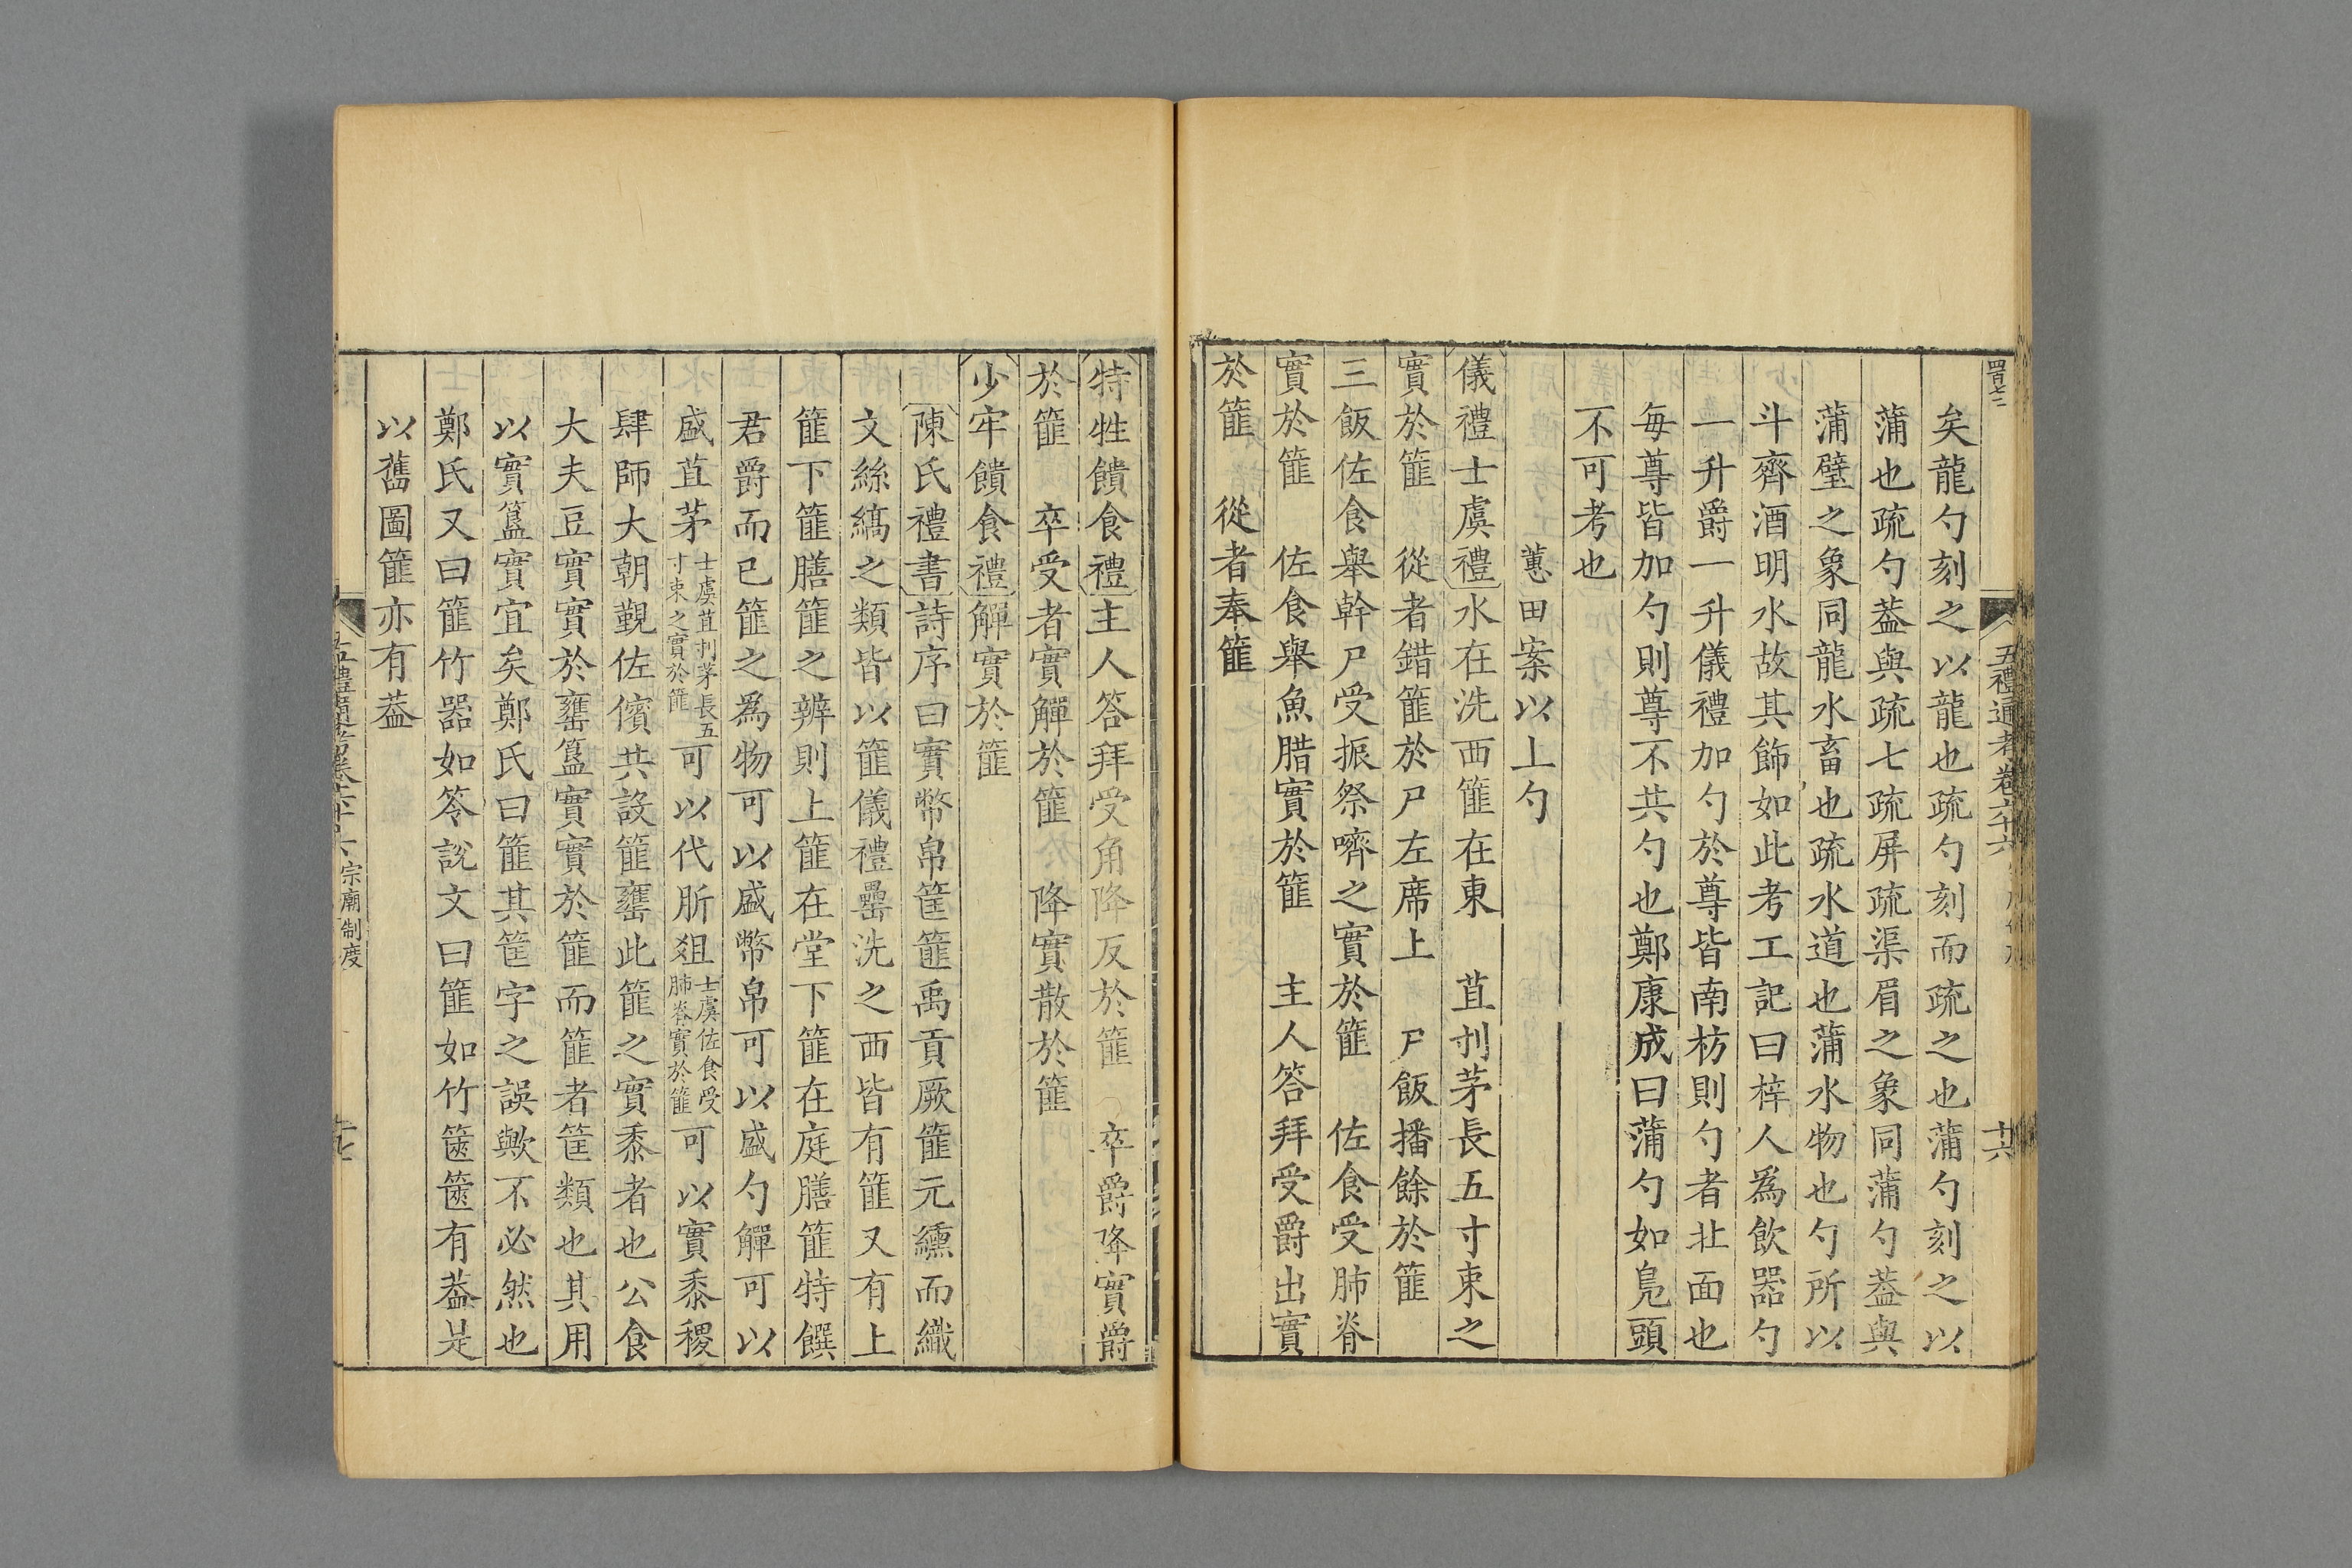 四百七二
五禮通考卷六十六
十六
矣龍勺刻之以龍也疏勺刻而疏之也蒲勺刻之以
蒲也疏勺葢與疏七疏屏疏渠眉之象同蒲勺葢與
蒲璧之象同龍水畜也疏水道也蒲水物也勺所以
斗齊酒明水故其飾如此考工記曰梓人爲飲器勺
一升爵一升儀禮加勺於尊皆南枋則勺者北面也
每尊皆加勺則尊不共勺也鄭康成曰蒲勺如鳧頭
不可考也
蕙田案以上勺
儀禮士虞禮水在洗西篚在東　苴刌茅長五寸束之
實於篚　從者錯篚於尸左席上　尸飯播餘於篚
三飯佐食舉幹尸受振祭嚌之實於篚　佐食受肺脊
實於篚　佐食舉魚腊實於篚　主人答拜受爵出實
於篚　從者奉篚
特牲饋食禮主人答拜受角降反於篚　卒爵降實爵
於篚　卒受者實觶於篚　降實散於篚
少牢饋食禮觶實於篚
陳氏禮書詩序曰實幣帛筐篚禹貢厥篚元纁而織
文絲縞之類皆以篚儀禮罍洗之西皆有篚又有上
篚下篚膳篚之辨則上篚在堂下篚在庭膳篚特饌
君爵而已篚之爲物可以盛幣帛可以盛勺觶可以
盛苴茅士虞苴刌茅長五寸束之實於篚可以代肵俎士虞佐食受肺脊實於篚可以實黍稷
肆師大朝覲佐儐共設篚罋此篚之實黍者也公食
大夫豆實實於罋簋實實於篚而篚者筐類也其用
以實簋實宜矣鄭氏曰篚其筐字之誤歟不必然也
鄭氏又曰篚竹器如笭說文曰篚如竹篋篋有葢是
以舊圖篚亦有葢
宗廟制度